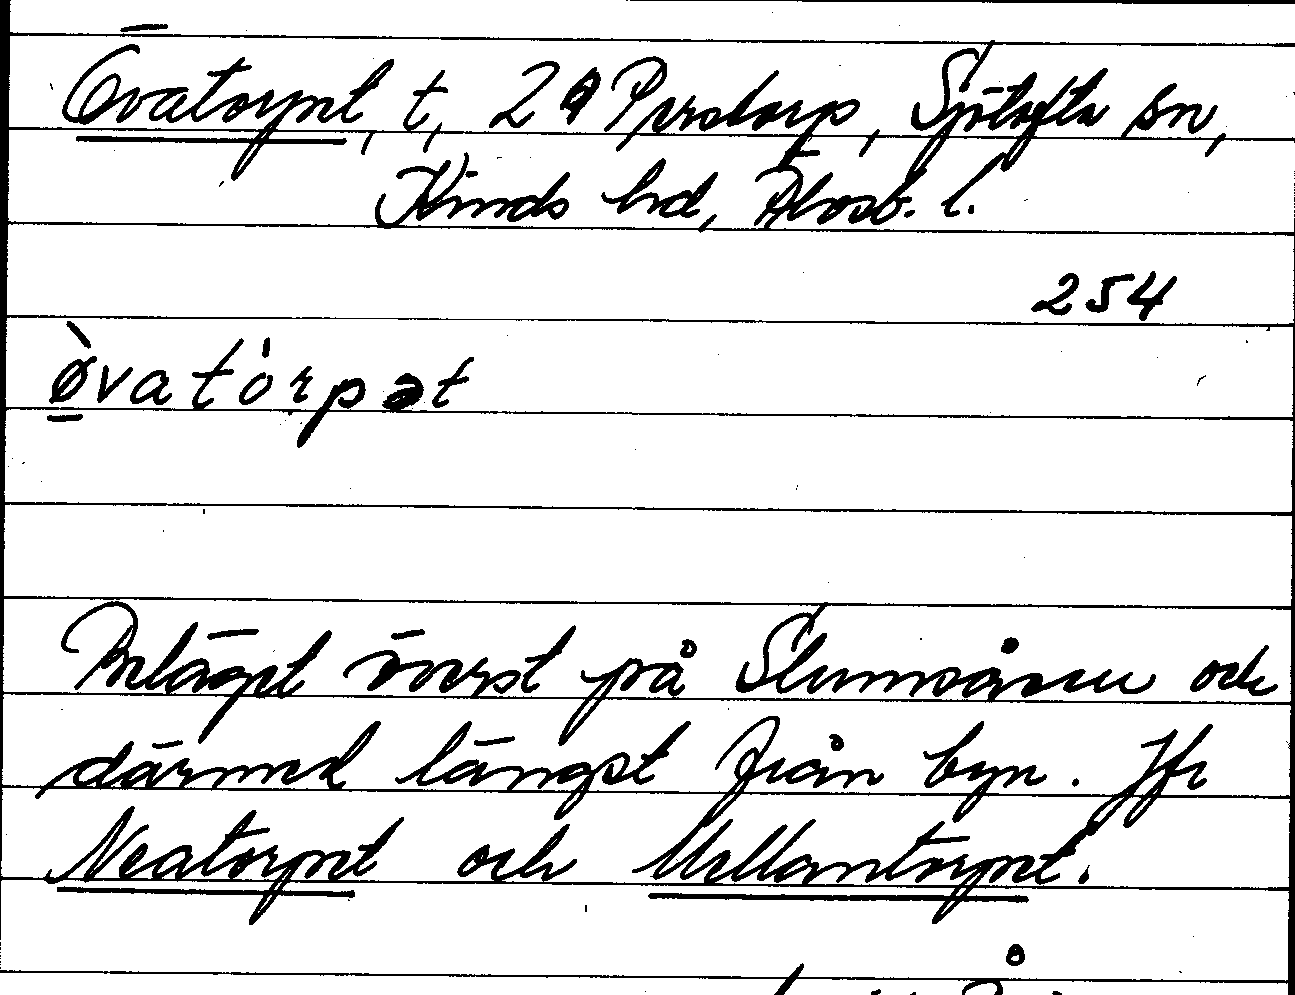 Övatorpet, t, 29 Perstorp, Sjötofta sn,
Kinds hd, Älvsb. l.
254
øvatorpət
Beläget överst på Slumsåsen och
därmed längst från byn. Jfr
Neatorpet och Mellantorpet.